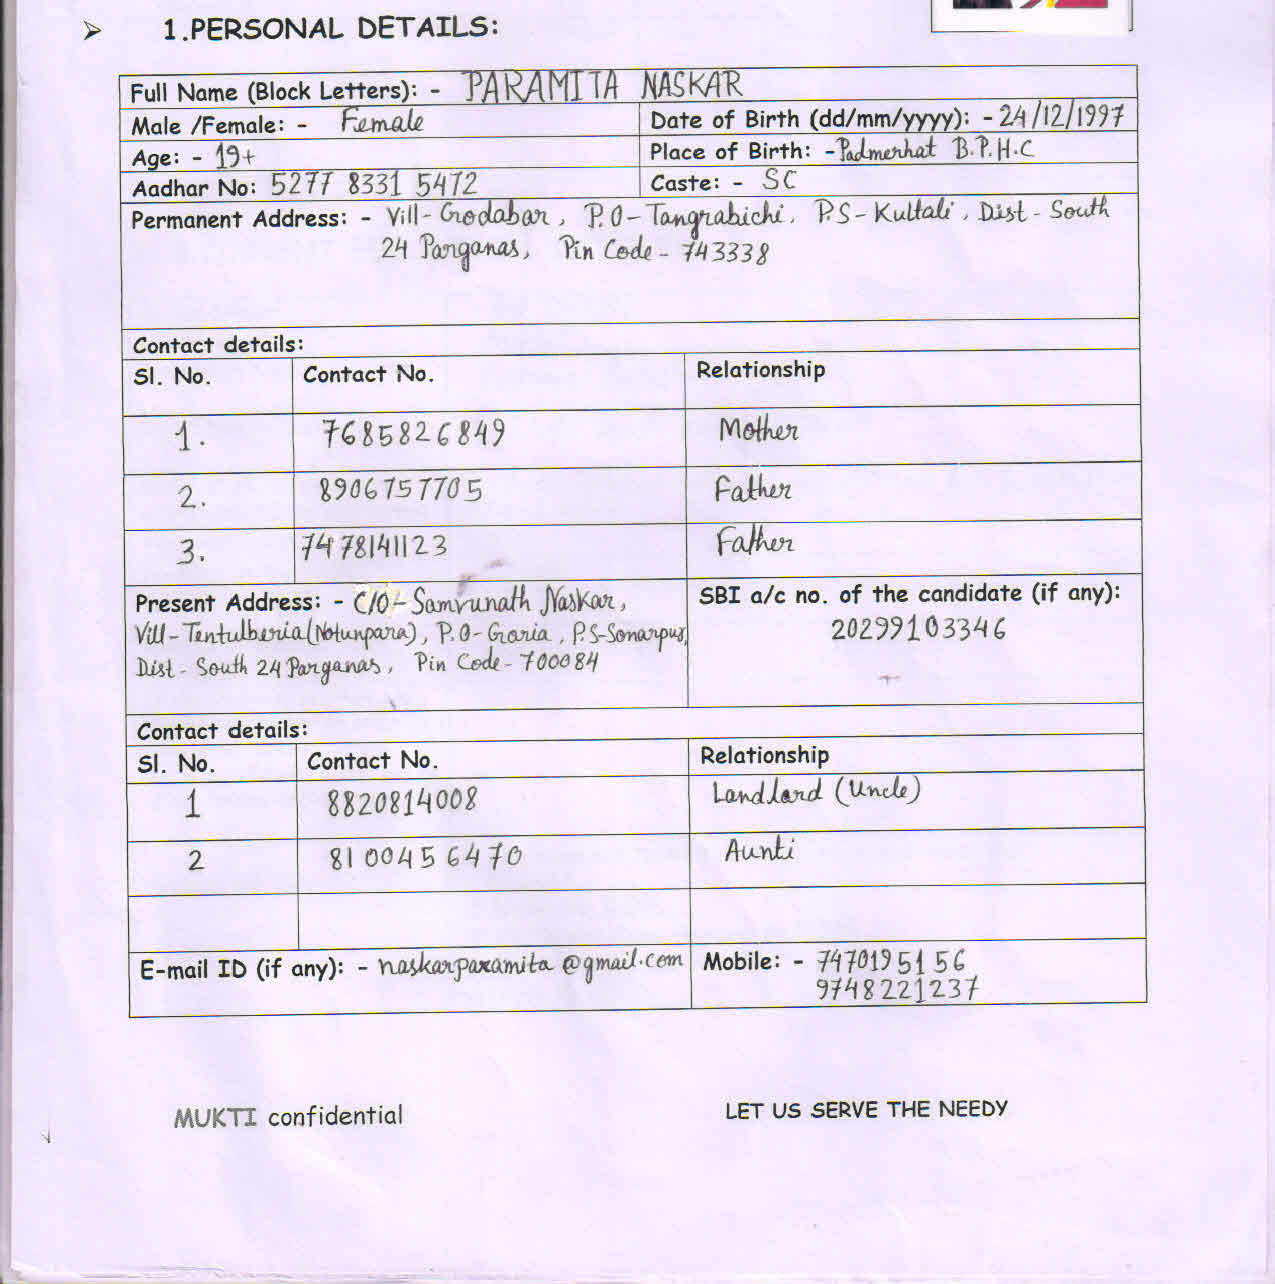 ➢ 1.PERSONAL DETAILS:
Full Name (Block Letters): - PARAMITA NASKAR
Male /Female: - Female Date of Birth (dd/mm/yyyy): - 24/12/1997
Age: - 19+ Place of Birth: - Padmerhat B.P.H.C
Aadhar No: 5277 8331 5472 Caste: - SC
Permanent Address: - Vill- Godabar, P.O- Tangrabichi, P.S- Kultali, Dist - South
24 Parganas, Pin Code - 743338
Contact details:
Sl. No. Contact No. Relationship
1. 7685826849 Mother
2. 8906757705 Father
3. 7478141123 Father
Present Address: - C/O- Samvunath Naskar, SBI a/c no. of the candidate (if any):
Vill- Tentulberia(Notunpara), P.O- Garia, P.S-Sonarpur, 20299103346
Dist - South 24 Parganas, Pin Code - 700084
Contact details:
Sl. No. Contact No. Relationship
1 8820814008 Landlard (Uncle)
2 8100456470 Aunti
E-mail ID (if any): - naskarparamita@gmail.com Mobile: - 7470195156
9748221237
MUKTI confidential LET US SERVE THE NEEDY